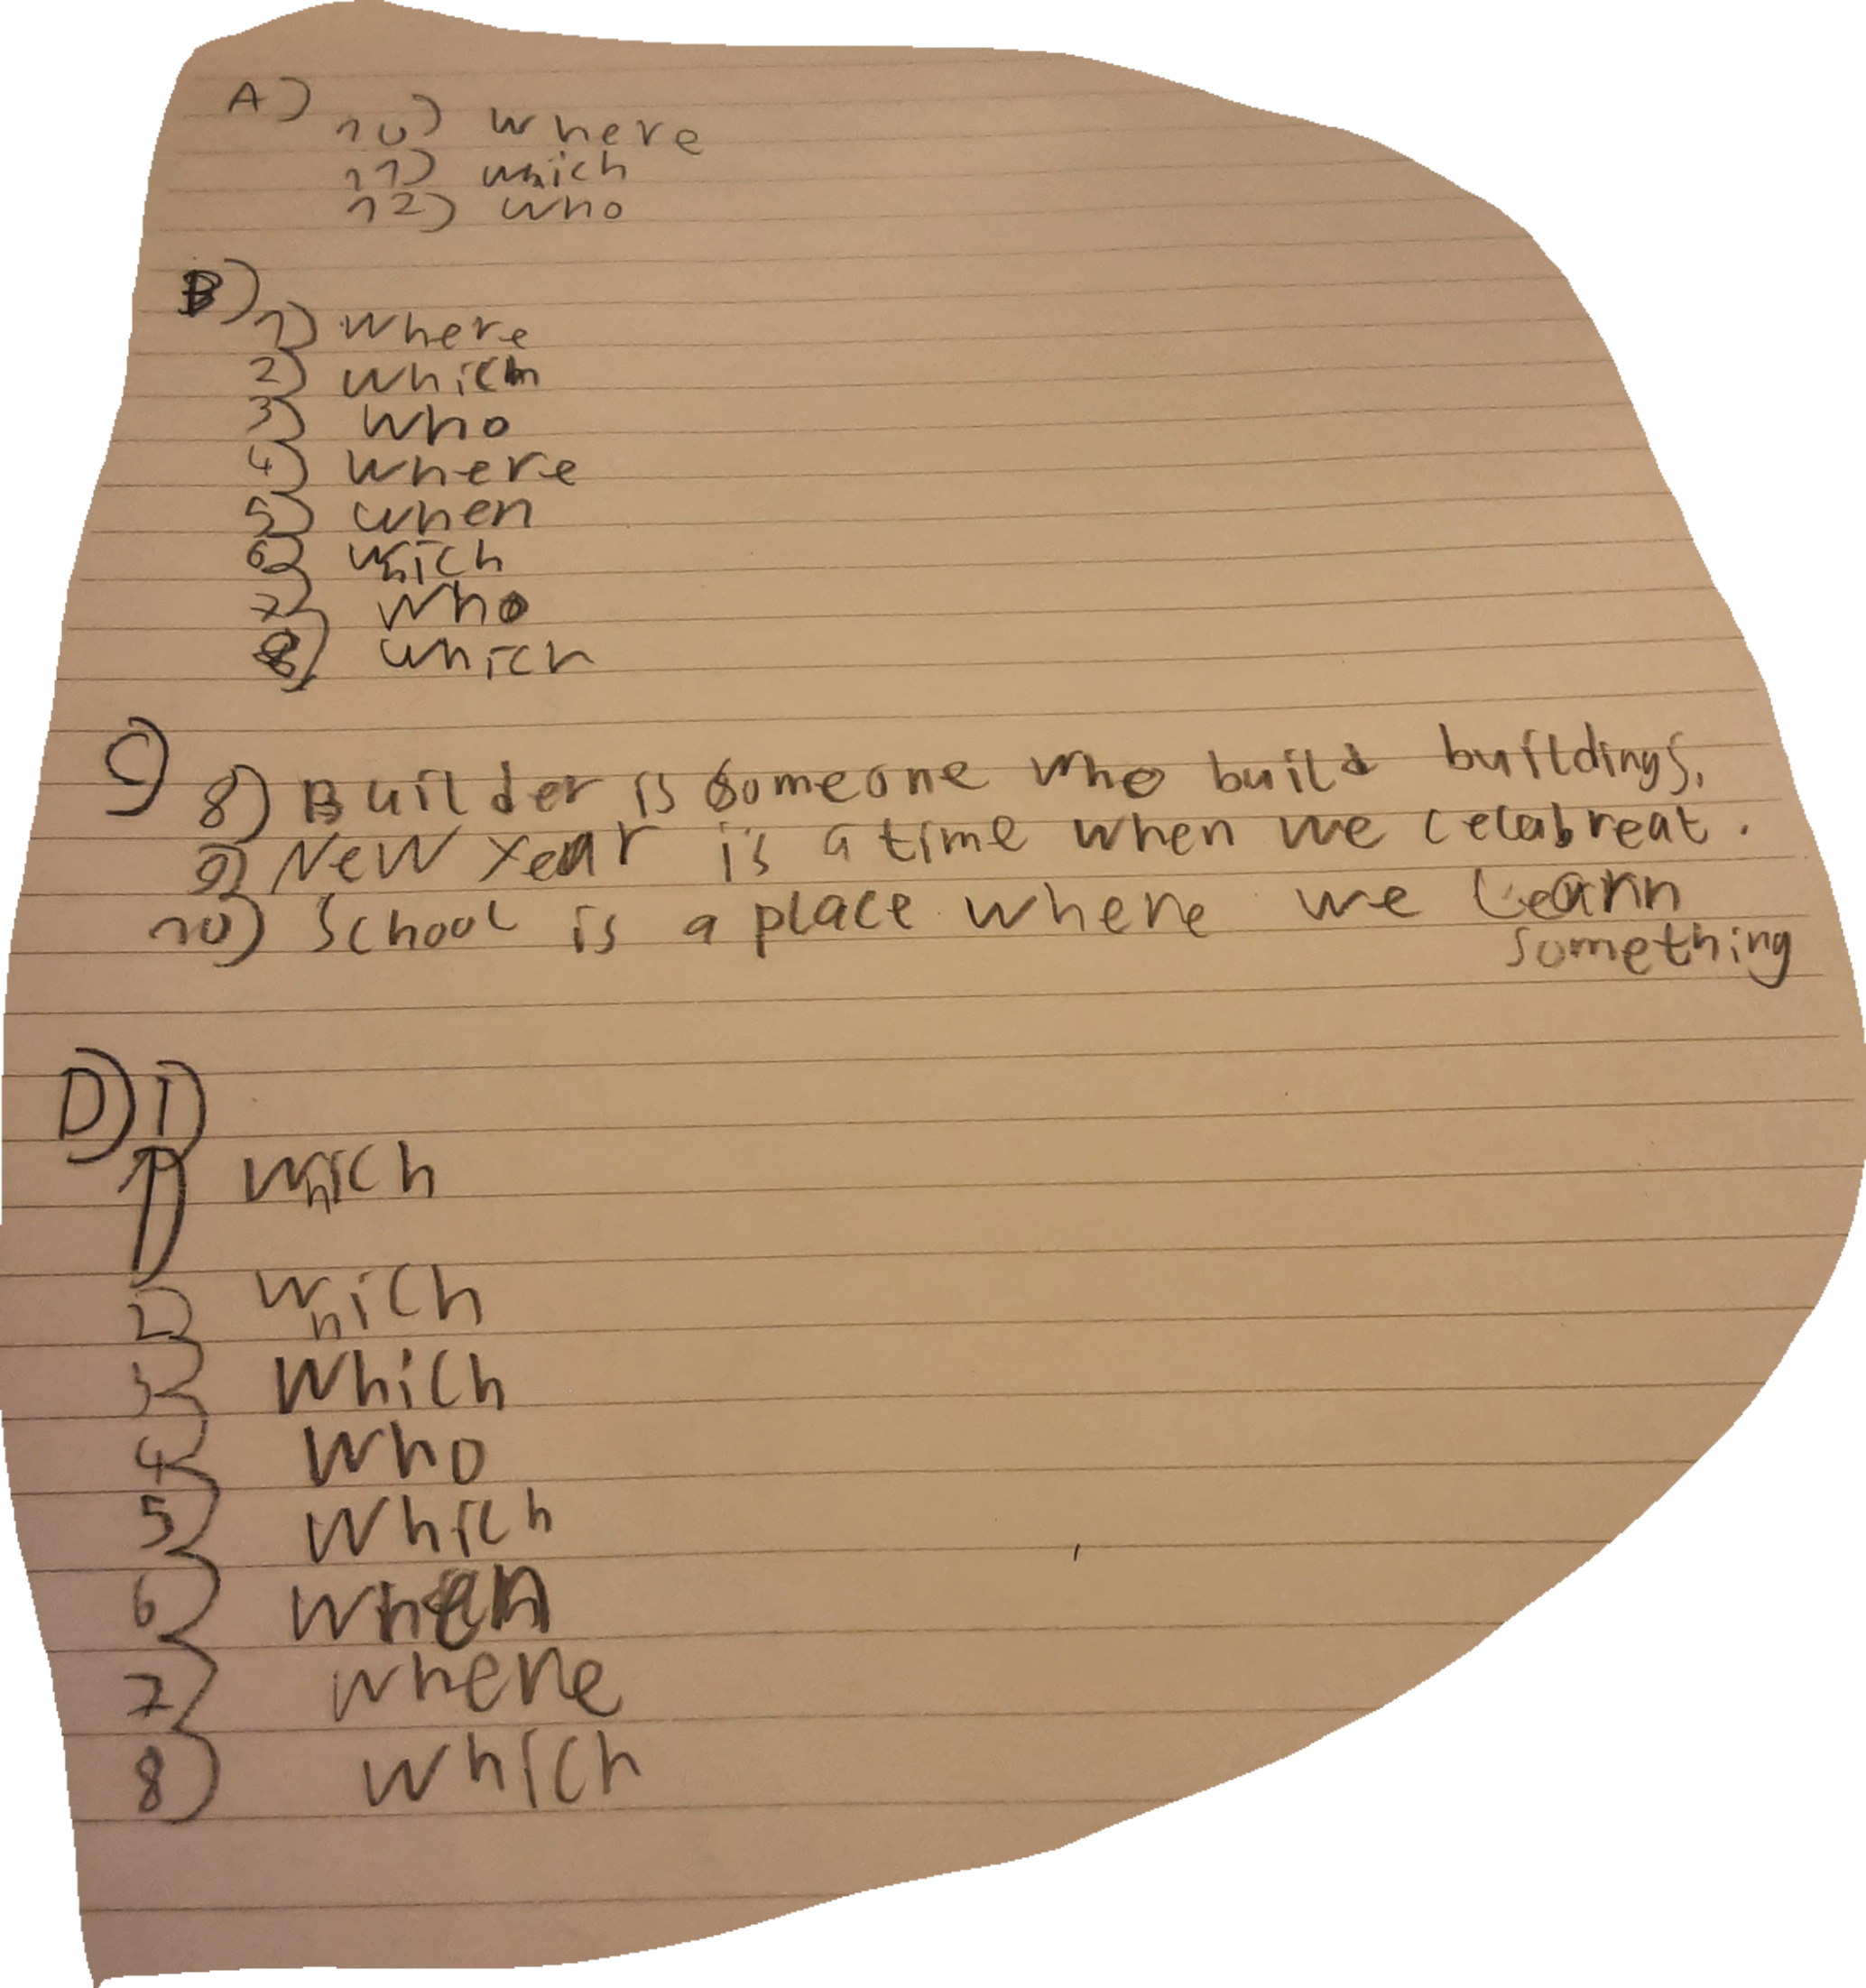 A)
10) where
11) which
12) who
B)
1) where
2) which
3) who
4) where
5) when
6) which
7) who
8) which
C)
8) Builder is someone who build buildings.
9) New Year is a time when we celabreat.
10) School is a place where we learn
something
D) 1)
1) which
2) which
3) which
4) who
5) which
6) when
7) where
8) which